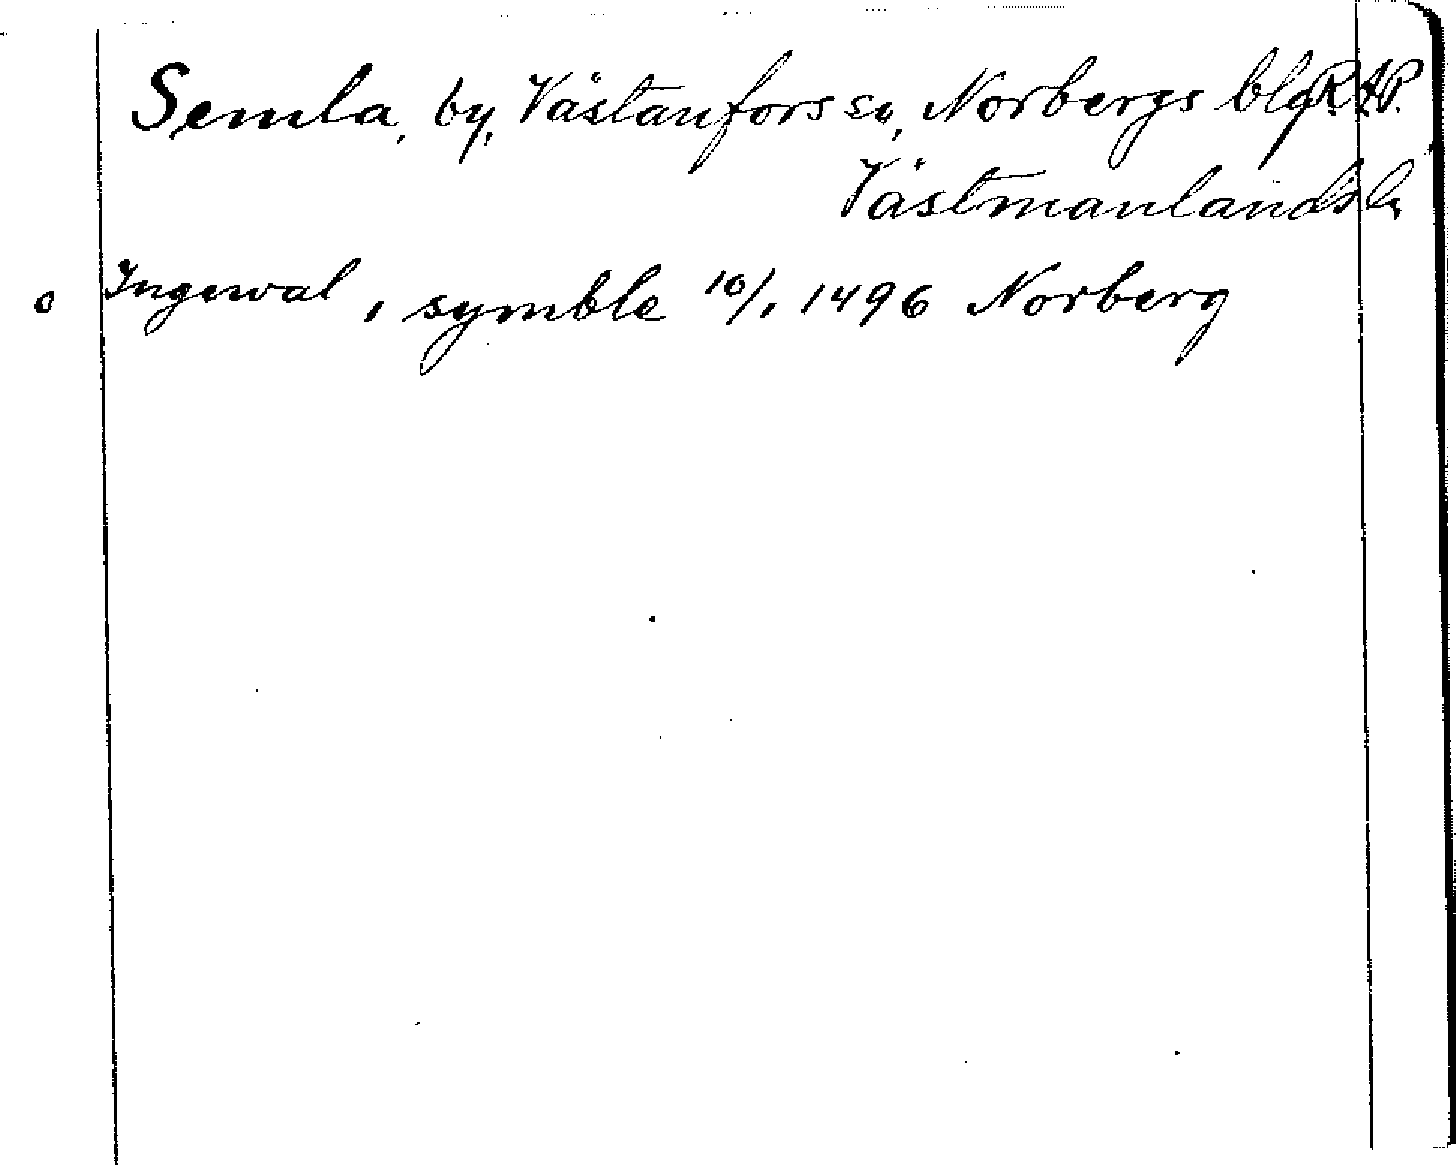 Semla, by, Västanfors sn, Norbergs blg RAP.
Västmanlands l.
o Ingewal, symble 10/1 1496 Norberg